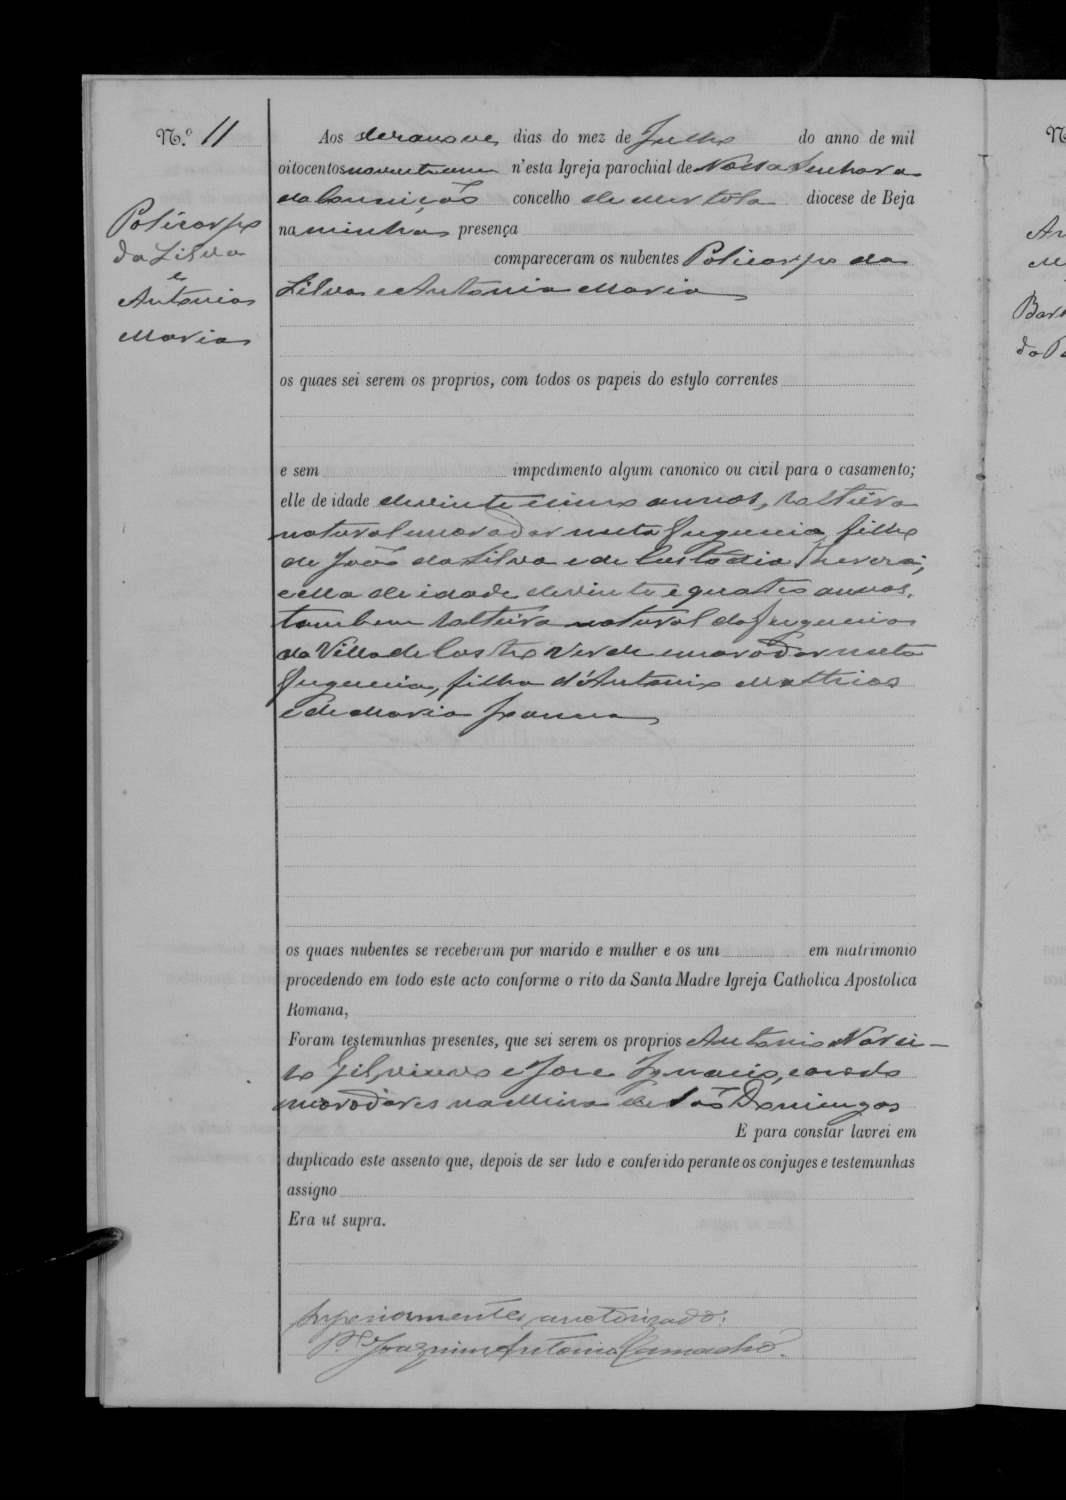 N.º 11
Policarpo
da Silva
e
Antonia
Maria
Aos dezanove dias do mez de Julho do anno de mil
oitocentos noventa e um n'esta Igreja parochial de Nossa Senhora
da Conceição concelho de Mertola diocese de Beja
na minha presença
compareceram os nubentes Policarpo da
Silva e Antonia Maria
os quaes sei serem os proprios, com todos os papeis do estylo correntes
e sem impedimento algum canonico ou civil para o casamento;
elle de idade de vinte e cinco annos, solteiro
natural e morador nesta freguezia, filho
de João da Silva e de Custodia Thereza;
e ella de idade de vinte e quatro annos,
tambem solteira natural da freguezia
da Villa de Castro Verde e moradora nesta
freguezia, filha d'Antonio Mathias
e de Maria Joanna
os quaes nubentes se receberam por marido e mulher e os uni em matrimonio
procedendo em todo este acto conforme o rito da Santa Madre Igreja Catholica Apostolica
Romana,
Foram testemunhas presentes, que sei serem os proprios Antonio
Gil, e José Ignacio, casado
moradores na Mina de São Domingos
E para constar lavrei em
duplicado este assento que, depois de ser lido e conferido perante os conjuges e testemunhas
assigno
Era ut supra.
Superiormente auctorizado:
P.e Joaquim Antonio Camacho.
N
An
M
Bar
da P